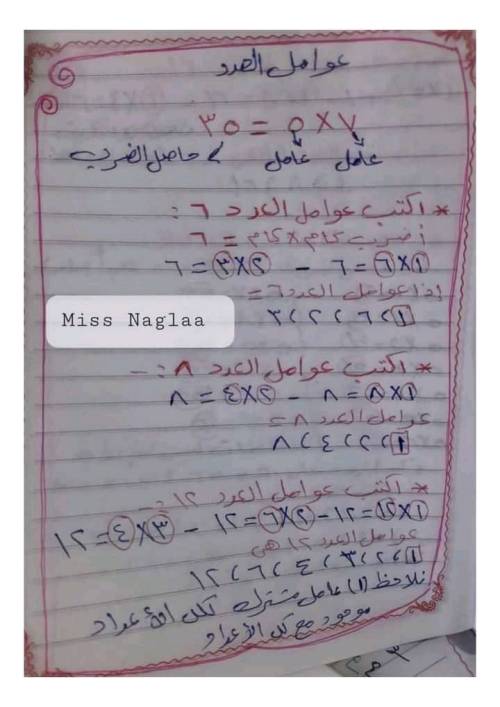 عوامل العدد
٧ × ٥ = ٣٥
عامل عامل حاصل الضرب
* اكتب عوامل العدد ٦ :
أضرب كام × كام = ٦
١×٦ = ٦ - ٢×٣ = ٦
إذا عوامل العدد ٦ =
١ ، ٦ ، ٢ ، ٣
Miss Naglaa
* اكتب عوامل العدد ٨ : -
١×٨ = ٨ - ٢×٤ = ٨
عوامل العدد ٨ =
١ ، ٢ ، ٤ ، ٨
* اكتب عوامل العدد ١٢ :-
١×١٢ = ١٢ - ٢×٦ = ١٢ - ٣×٤ = ١٢
عوامل العدد ١٢ هي
١ ، ٢ ، ٣ ، ٤ ، ٦ ، ١٢
نلاحظ (١) عامل مشترك لكل الأعداد
موجود مع كل الأعداد